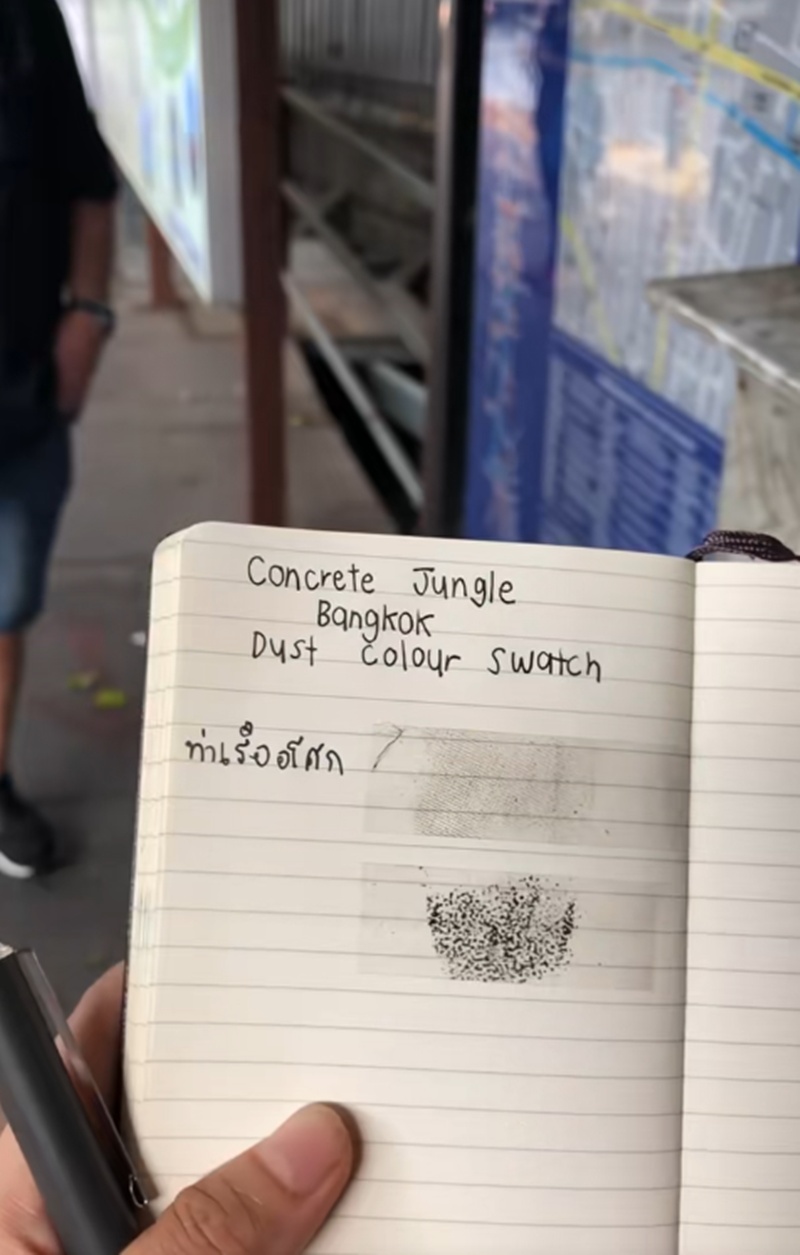 Concrete Jungle
Bangkok
Dust Colour Swatch
ท่าเรืออโศก